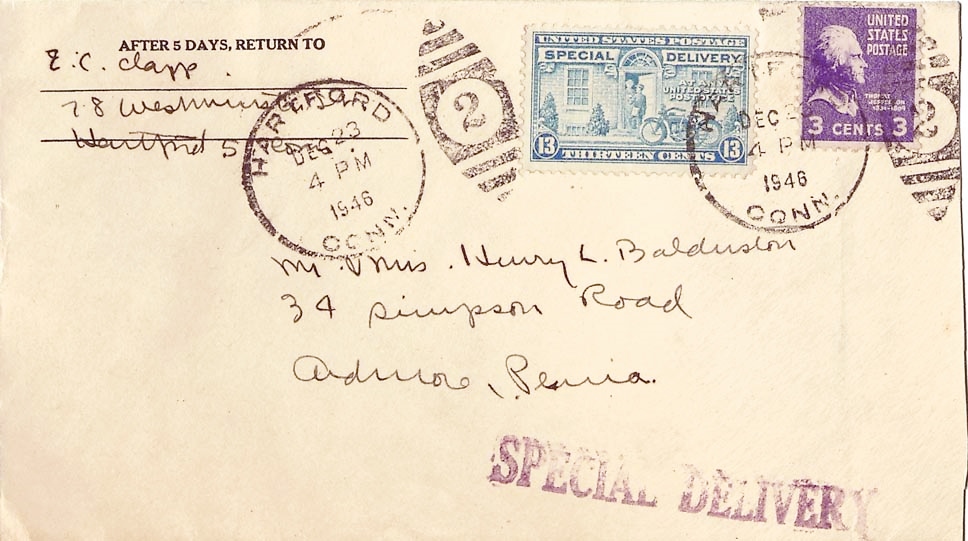 AFTER 5 DAYS, RETURN TO
E. C. Clapp.
78 Westminster
Hartford 5 Conn.
HARTFORD
DEC 23
4 PM
1946
CONN.
2
UNITED STATES POSTAGE
SPECIAL DELIVERY
UNITED STATES
POSTAGE
13 THIRTEEN CENTS 13
UNITED
STATES
POSTAGE
THOMAS
JEFFERSON
3 CENTS 3
HARTFORD
DEC 2
4 PM
1946
CONN.
2
Mr. & Mrs. Henry L. Balderston
34 Simpson Road
Ardmore, Penna.
SPECIAL DELIVERY